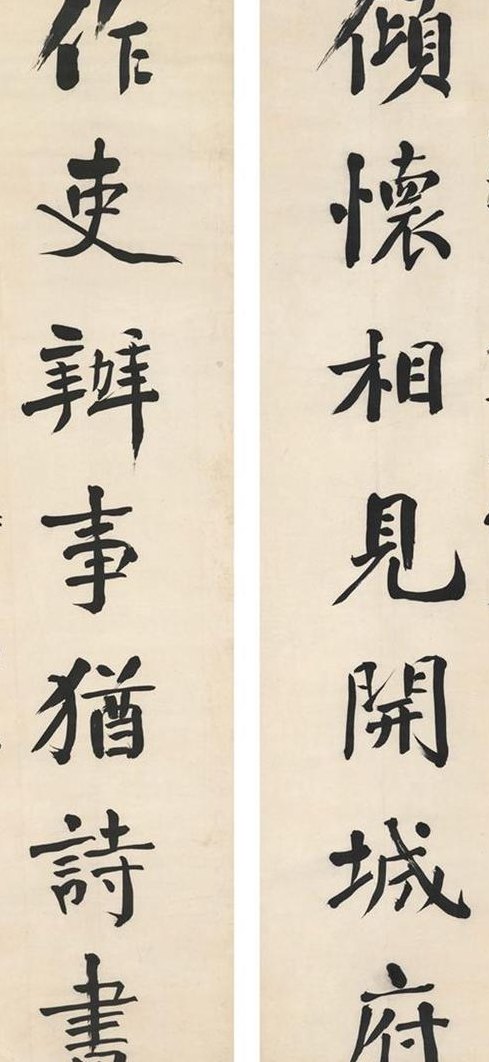 傾懷相見開城府
作吏辦事猶詩書